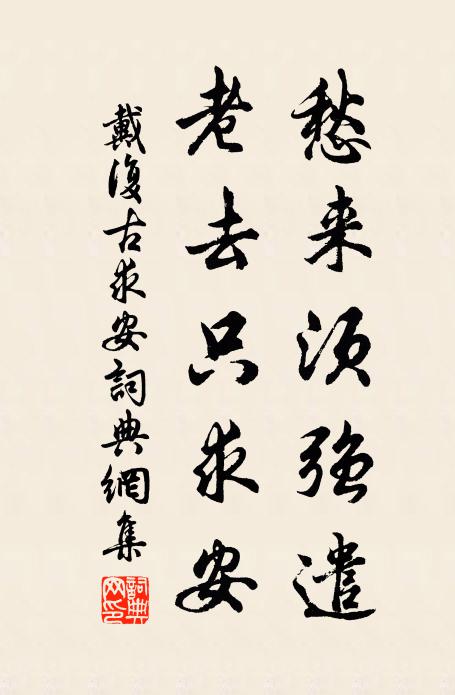 愁来須強遣
老去只求安
戴復古求安詞典網集
詞典
网印